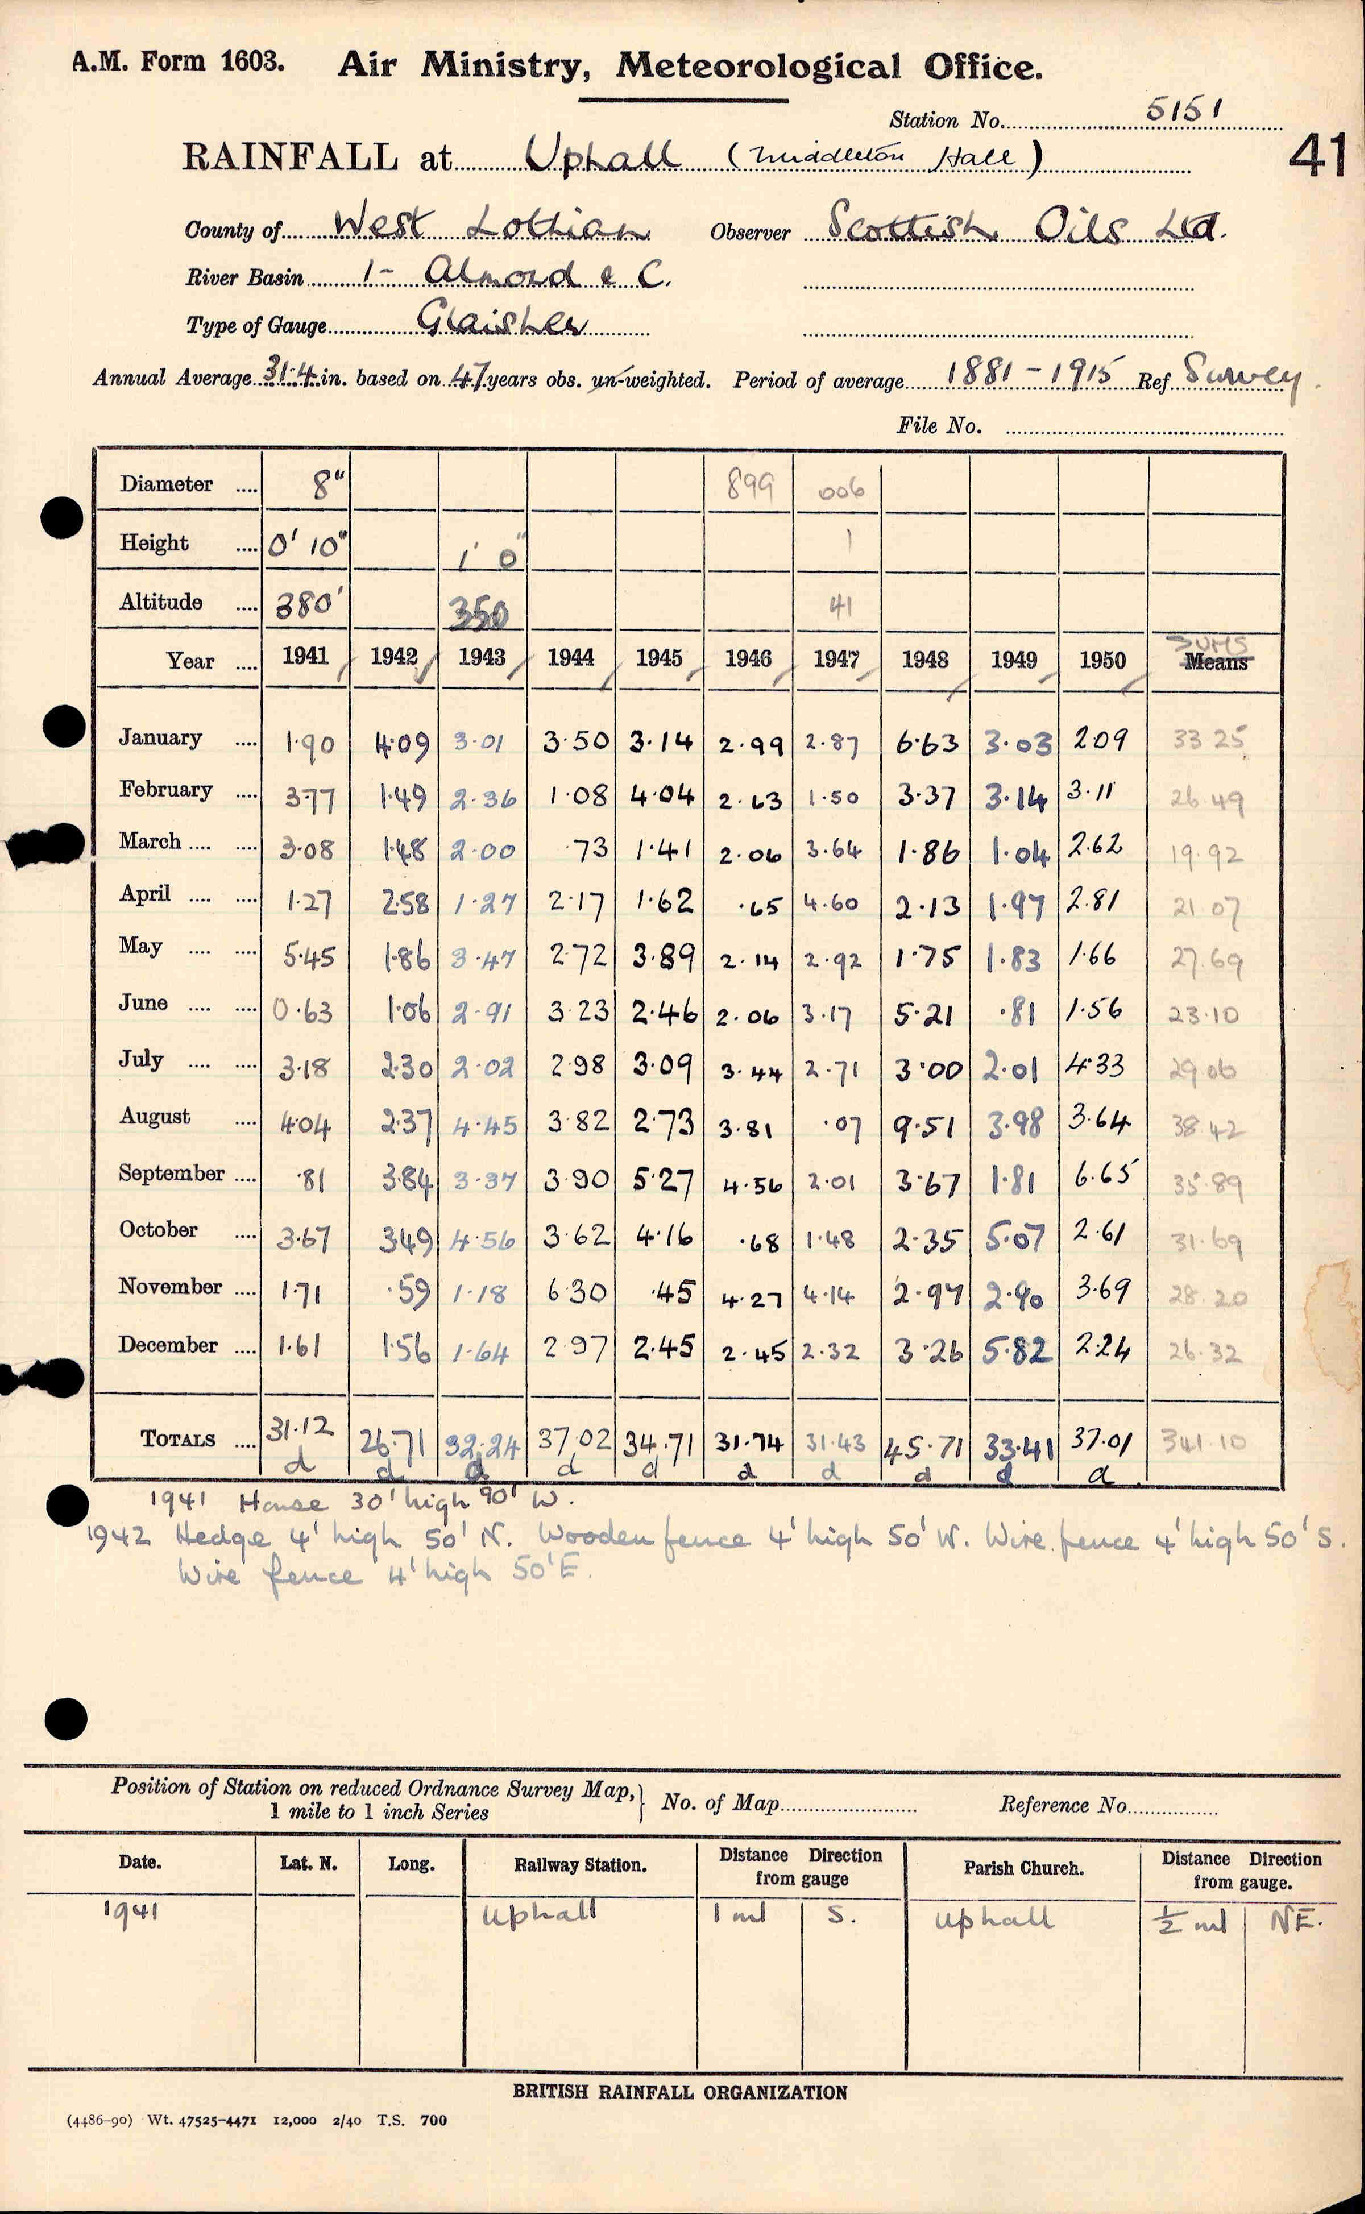 A.M. Form 1603. Air Ministry, Meteorological Office.
Station No. 5151
41
RAINFALL at Uphall (Middleton Hall)
County of West Lothian Observer Scottish Oils Ltd.
River Basin 1- Almond & C.
Type of Gauge Glaisher
Annual Average 31.4 in. based on 47 years obs. un-weighted. Period of average 1881-1915 Ref Survey.
File No.
Diameter .... 8" 899 006
Height .... 0' 10" 1' 0" 1
Altitude .... 380' 350 41
Year .... 1941 1942 1943 1944 1945 1946 1947 1948 1949 1950 Means SUMS
January .... 1.90 4.09 3.01 3.50 3.14 2.99 2.87 6.63 3.03 2.09 33.25
February .... 3.77 1.49 2.36 1.08 4.04 2.63 1.50 3.37 3.14 3.11 26.49
March .... .... 3.08 1.48 2.00 .73 1.41 2.06 3.64 1.86 1.04 2.62 19.92
April .... .... 1.27 2.58 1.27 2.17 1.62 .65 4.60 2.13 1.97 2.81 21.07
May .... .... 5.45 1.86 3.47 2.72 3.89 2.14 2.92 1.75 1.83 1.66 27.69
June .... .... 0.63 1.06 2.91 3.23 2.46 2.06 3.17 5.21 .81 1.56 23.10
July .... .... 3.18 2.30 2.02 2.98 3.09 3.44 2.71 3.00 2.01 4.33 29.06
August .... 4.04 2.37 4.45 3.82 2.73 3.81 .07 9.51 3.98 3.64 38.42
September .... .81 3.84 3.37 3.90 5.27 4.56 2.01 3.67 1.81 6.65 35.89
October .... 3.67 3.49 4.56 3.62 4.16 .68 1.48 2.35 5.07 2.61 31.69
November .... 1.71 .59 1.18 6.30 .45 4.27 4.14 2.97 2.90 3.69 28.20
December .... 1.61 1.56 1.64 2.97 2.45 2.45 2.32 3.26 5.82 2.24 26.32
TOTALS .... 31.12 26.71 32.24 37.02 34.71 31.74 31.43 45.71 33.41 37.01 341.10
d d d d d d d d d d
1941 House 30' high 90' W.
1942 Hedge 4' high 50' N. Wooden fence 4' high 50' W. Wire fence 4' high 50' S.
Wire fence 4' high 50' E.
Position of Station on reduced Ordnance Survey Map, 1 mile to 1 inch Series } No. of Map Reference No.
Date. Lat. N. Long. Railway Station. Distance Direction from gauge Parish Church. Distance Direction from gauge.
1941 Uphall 1 ml S. Uphall ½ ml NE.
BRITISH RAINFALL ORGANIZATION
(4486-90) Wt. 47525-4471 12,000 2/40 T.S. 700